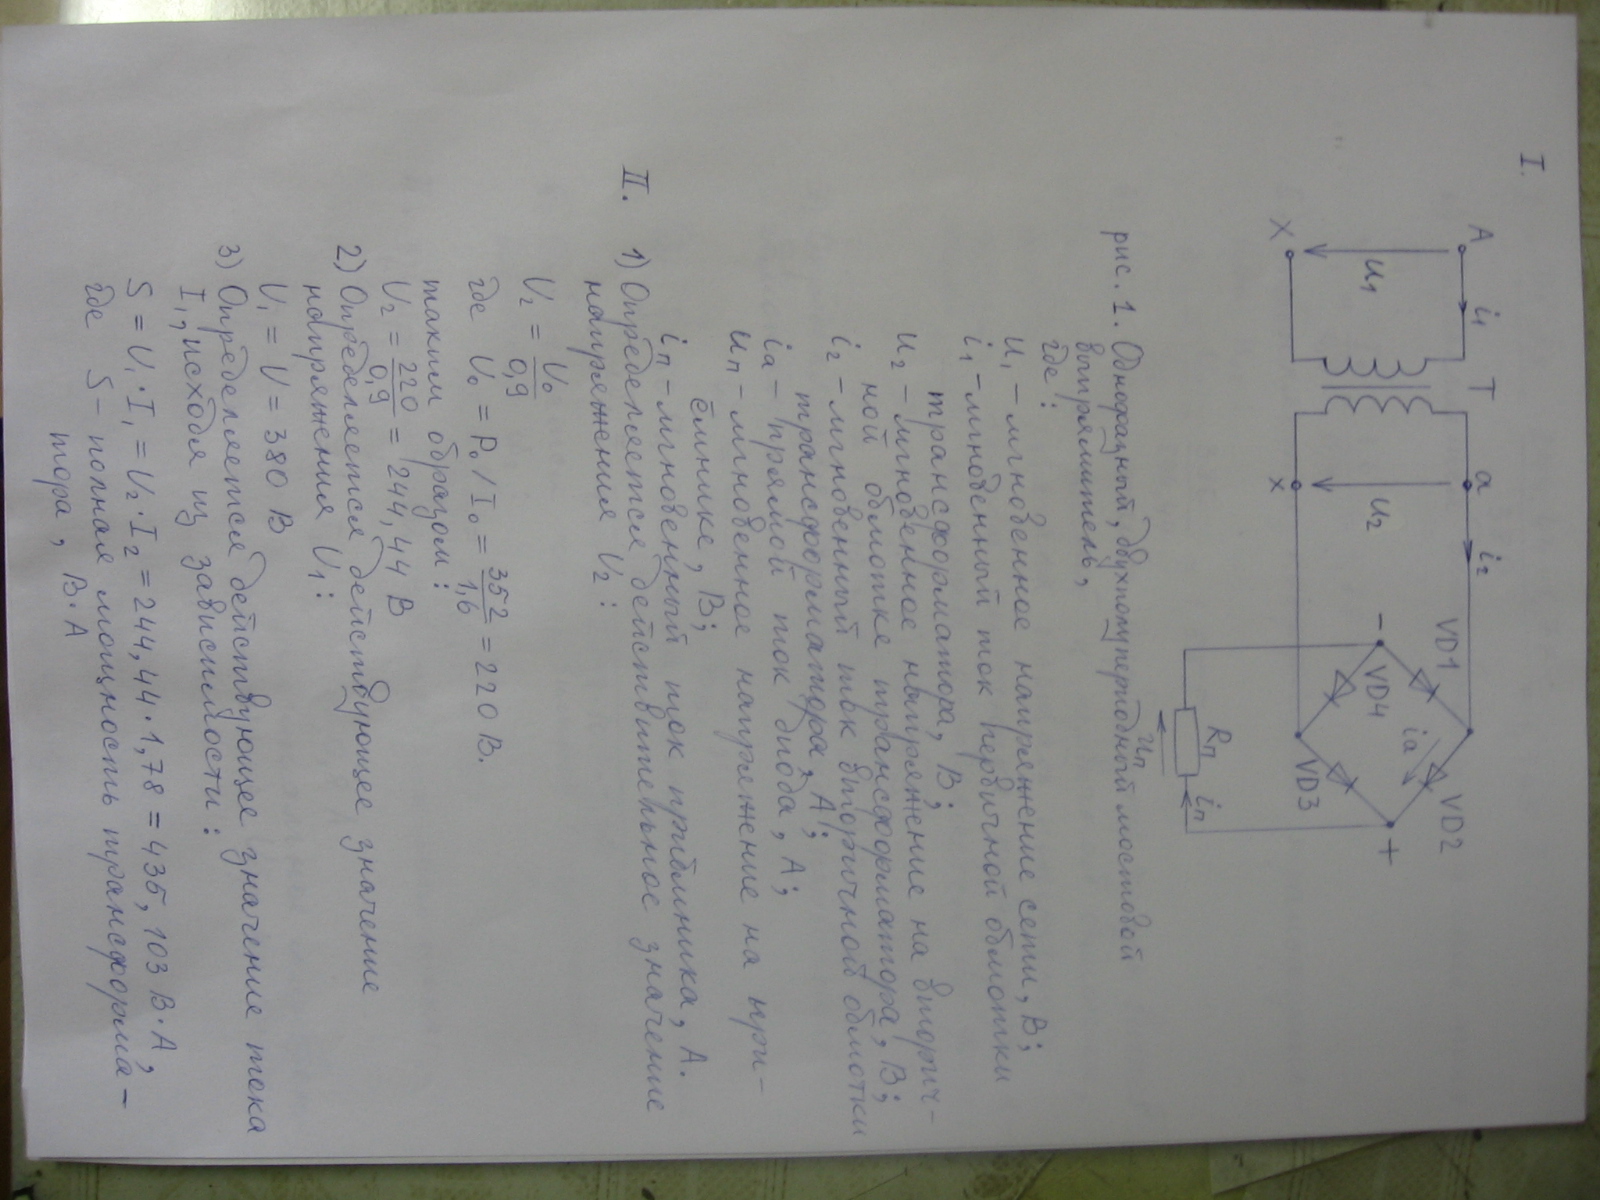 I.
A i₁ T a i₂ VD1 VD2
u₁ u₂ - VD4 ia +
X x VD3
Rп iп
uп
рис. 1. Однофазный, двухполупериодный мостовой
выпрямитель,
где:
u₁ – мгновенное напряжение сети, В;
i₁ – мгновенный ток первичной обмотки
трансформатора, В;
u₂ – мгновенное напряжение на вторич-
ной обмотке трансформатора, В;
i₂ – мгновенный ток вторичной обмотки
трансформатора, А;
ia – прямой ток диода, А;
uп – мгновенное напряжение на при-
ёмнике, В;
iп – мгновенный ток приёмника, А.
II. 1) Определяется действительное значение
напряжения U₂:
U₂ = U₀/0,9
где U₀ = P₀ / I₀ = 352/1,6 = 220 В.
таким образом:
U₂ = 220/0,9 = 244,44 В
2) Определяется действующее значение
напряжения U₁:
U₁ = U = 380 В
3) Определяется действующее значение тока
I₁, исходя из зависимости:
S = U₁·I₁ = U₂·I₂ = 244,44·1,78 = 435,103 В·А,
где S – полная мощность трансформа-
тора, В·А